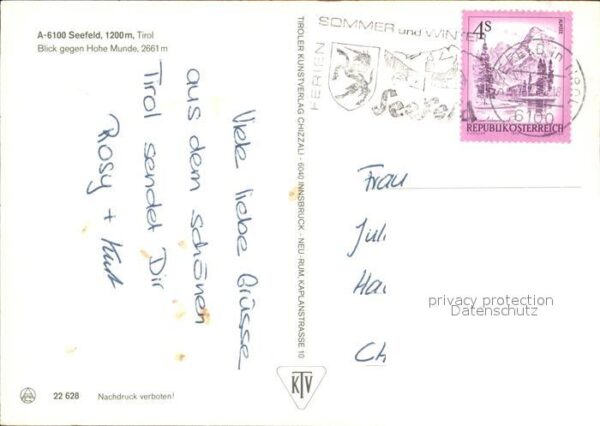 A-6100 Seefeld, 1200 m, Tirol
Blick gegen Hohe Munde, 2661 m
Viele liebe Grüsse
aus dem schönen
Tirol sendet Dir
Rosy + Kurt
22 628 Nachdruck verboten!
TIROLER KUNSTVERLAG CHIZZALI - 6040 INNSBRUCK - NEU-RUM, KAPLANSTRASSE 10
KTV
FERIEN
SOMMER und WINTER
Seefeld
6100
4 S
REPUBLIK ÖSTERREICH
Frau
Juli
Ha
Ch
privacy protection
Datenschutz